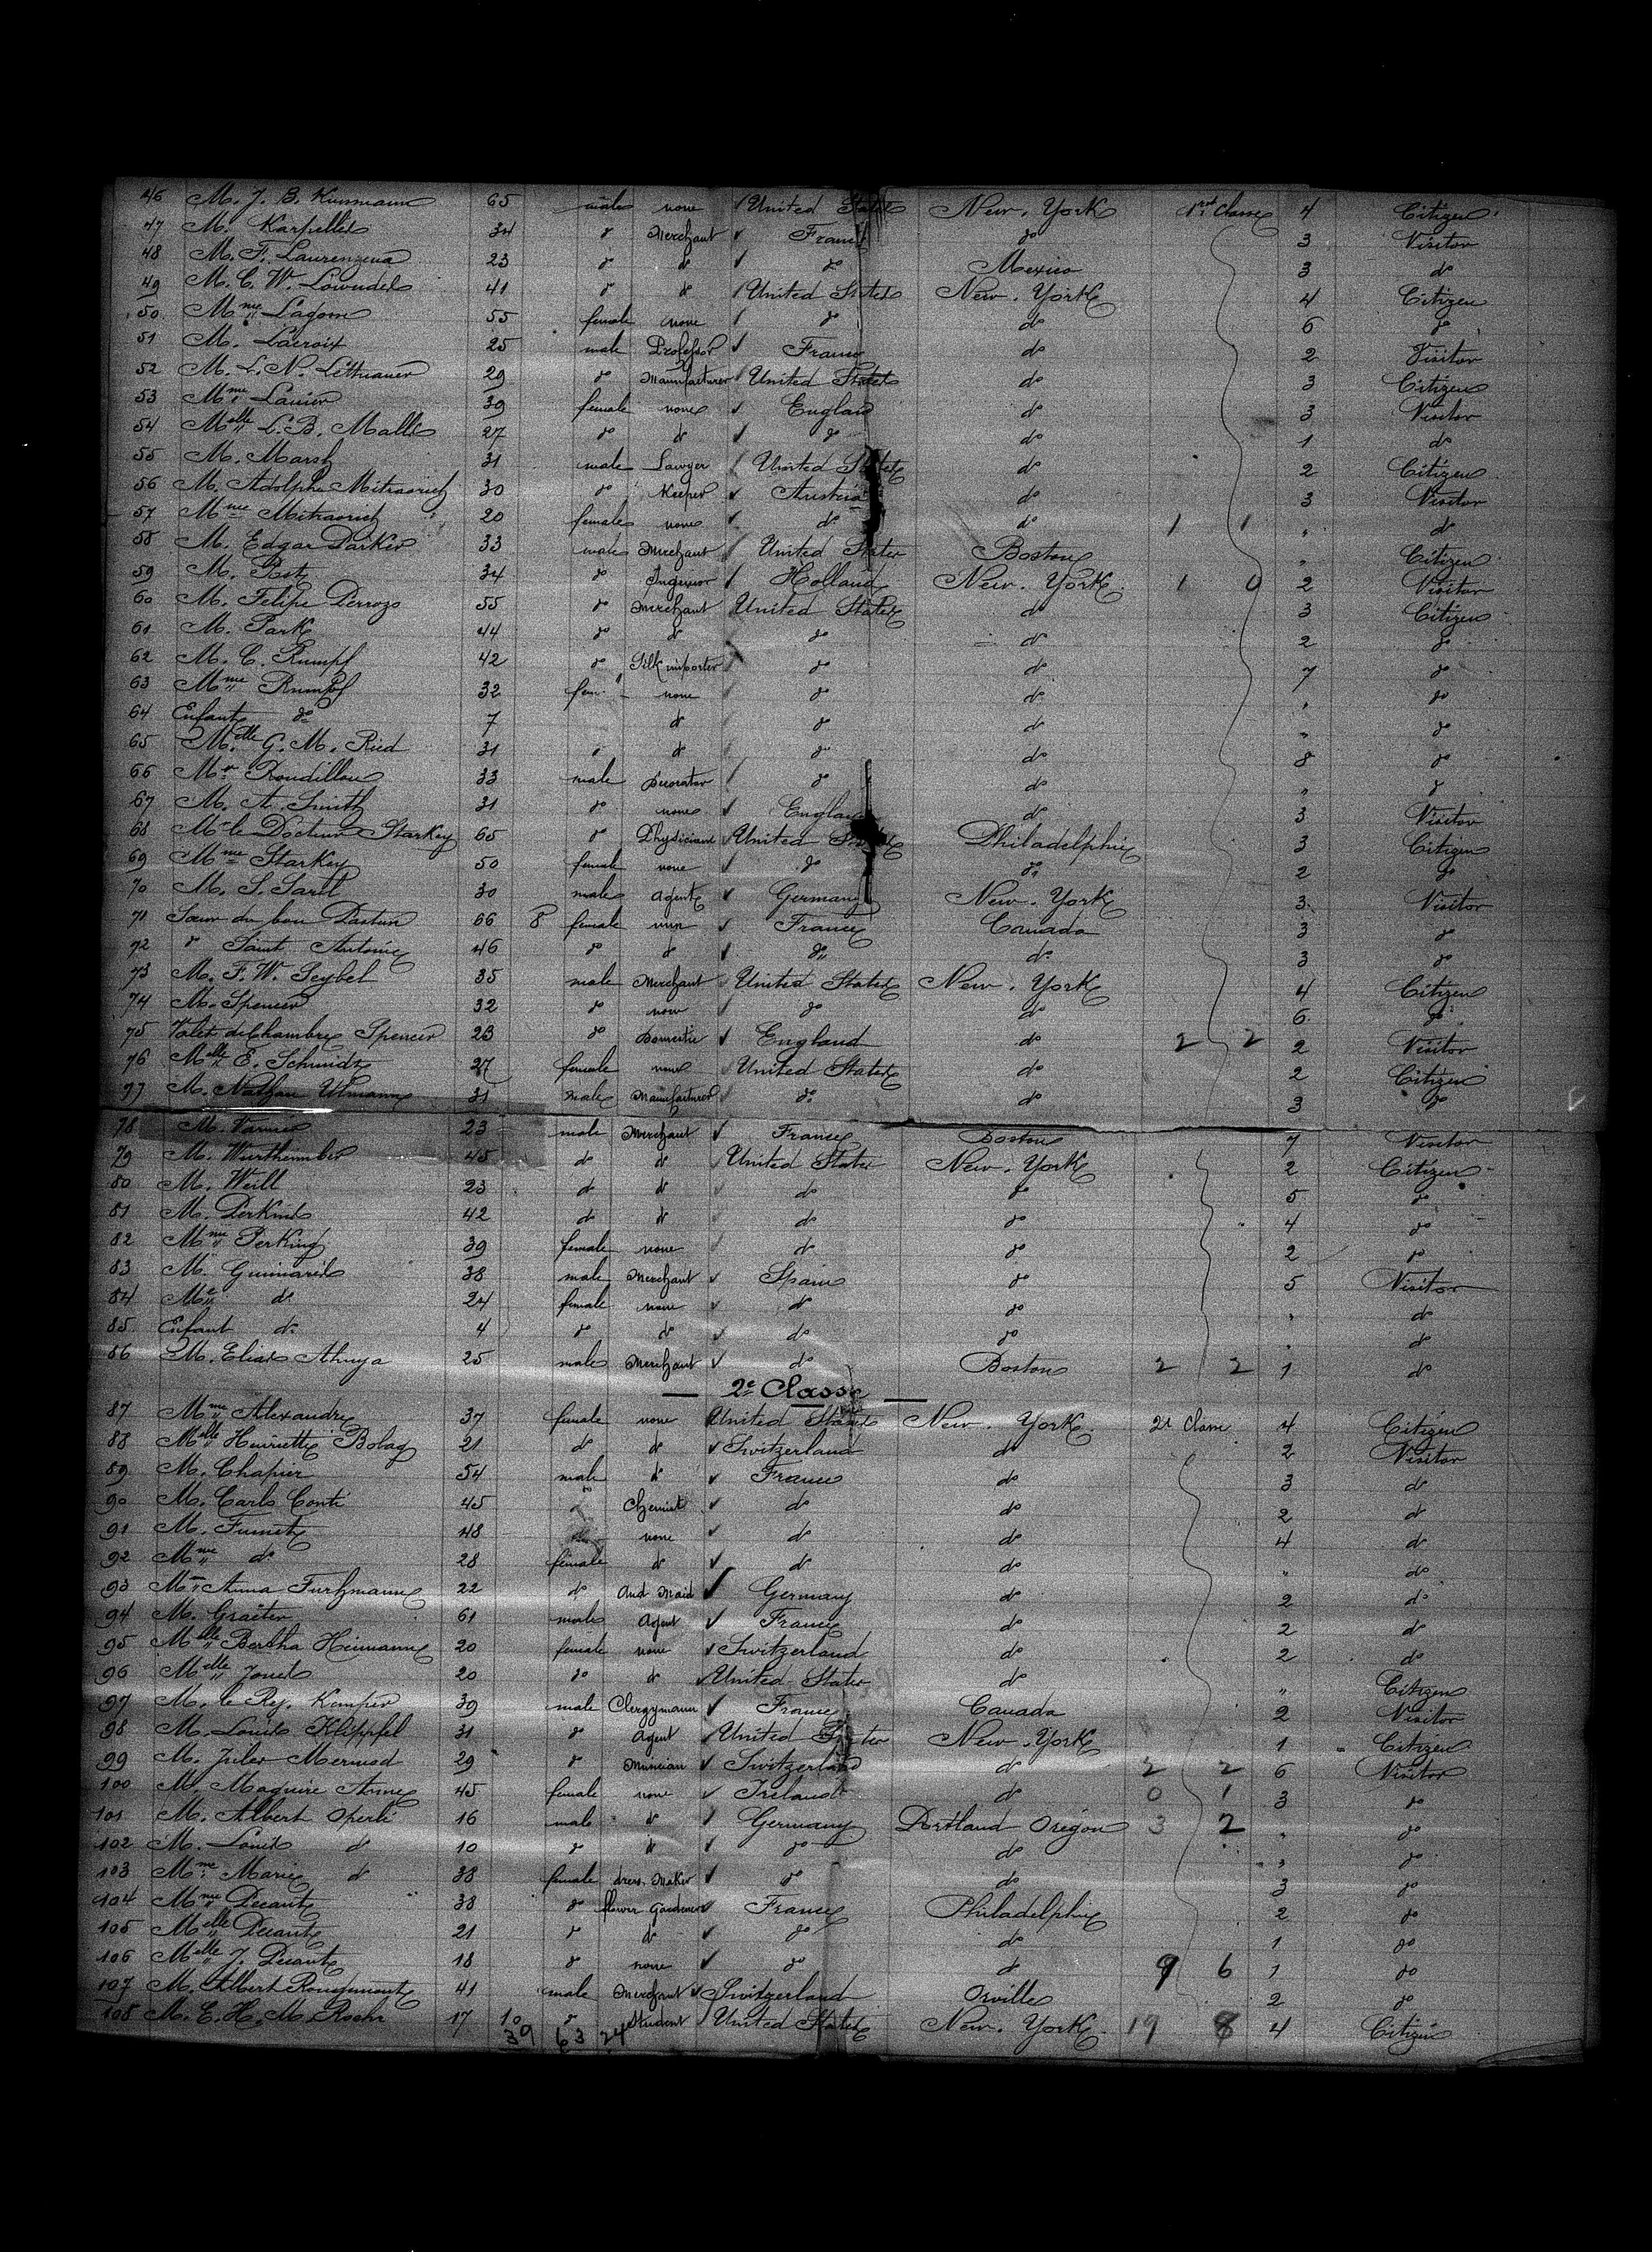 46 M. J. B. Kinsmann 65 male none United States New. York 1rst Classe 4 Citizen
47 M. Karpelles 34 do Merchant France do 3 Visitor
48 M. F. Laurenzena 23 do do do Mexico 3 do
49 M. C. W. Lowndes 41 do do United States New. York 4 Citizen
50 Mme Lagom 55 female none do do 6 do
51 M. Lacroix 25 male Professor France do 2 Visitor
52 M. L. N. Littnauer 29 do Manufacturer United States do 3 Citizen
53 Mme Lanier 39 female none England do 3 Visitor
54 Melle L. B. Malle 27 do do do do 1 do
55 M. Marsh 31 male Lawyer United States do 2 Citizen
56 M. Adolphe Mitraovich 30 do Keeper Austria do 3 Visitor
57 Mme Mitraovich 20 female none do do 1 1 " do
58 M. Edgar Parker 33 male Merchant United States Boston " Citizen
59 M. Post 34 do Ingenior Holland New. York. 1 0 2 Visitor
60 M. Felipe Perrozo 55 do Merchant United States do 3 Citizen
61 M. Park 44 do do do do 2 do
62 M. C. Rumpf 42 do Silk importer do do 7 do
63 Mme Rumpf 32 fem. none do do " do
64 Enfant do 7 do do do " do
65 Melle G. M. Ried 31 " do do do 8 do
66 Mr Roudillon 33 male Decorator do do " do
67 M. A. Smith 31 do none England do 3 Visitor
68 Mr le Docteur Starkey 65 do Physician United States Philadelphie 3 Citizen
69 Mme Starkey 50 female none do do 2 do
70 M. S. Sartt 30 male agent Germany New. York 3 Visitor
71 Soeur du bon Pasteur 66 8 female nun France Canada 3 do
72 do Saint Antoine 46 do do do do 3 do
73 M. F. W. Seybel 35 male Merchant United States New. York 4 Citizen
74 M. Spencer 32 do none do do 6 do
75 Valet de Chambre Spencer 23 do Domestic England do 2 2 2 Visitor
76 Melle E. Schmidt 27 female none United States do 2 Citizen
77 M. Nathan Ulmann 31 male Manufacturer do do 3 do
78 M. 23 male Merchant France Boston 7 Visitor
79 M. Wurthember 45 do do United States New. York 2 Citizen
80 M. Weill 23 do do do do 5 do
81 M. Perkins 42 do do do do 4 do
82 Mme Perkins 39 female none do do 2 do
83 M. Guimareis 38 male Merchant Spain do 5 Visitor
84 Me do 24 female none do do " do
85 Enfant do 4 do do do do " do
86 M. Elias Ahuya 25 male Merchant do Boston 2 2 1 do
— 2e Classe —
87 Mme Alexandre 37 female none United States New. York 2d Classe 4 Citizen
88 Melle Henriette Bolag 21 do do Switzerland do 2 Visitor
89 M. Chapier 54 male do France do 3 do
90 M. Carlo Conti 45 do Chemist do do 2 do
91 M. Fumet 48 none do do 4 do
92 Mme do 28 female do do do " do
93 Me Anna Furhmann 22 do And Maid Germany do 2 do
94 M. Graëter 61 male Agent France do 2 do
95 Melle Bertha Heimann 20 female none Switzerland do 2 do
96 Melle Jones 20 do do United States do " Citizen
97 M. le Rev. Kemper 39 male Clergymann France Canada 2 Visitor
98 M. Louis Klippfel 31 do Agent United States New. York 1 Citizen
99 M. Jules Mermod 29 do Musician Switzerland do 2 2 6 Visitor
100 M. Maguire Anne 45 female none Ireland do 0 1 3 do
101 M. Albert Operlé 16 male do Germany Portland Oregon 3 2 " do
102 M. Louis do 10 do do do do " do
103 Mme Marie do 38 female dress. Maker do do 3 do
104 Mme Decante 38 do flower Gardener France Philadelphie 2 do
105 Melle Decante 21 do do do do 1 do
106 Melle J. Decante 18 do none do do 9 6 1 do
107 M. Albert Rougemont 41 male Merchant Switzerland Orville 2 do
108 M. E. H. M. Roehr 17 10 do Student United States New. York. 19 8 4 Citizen
39 63 24